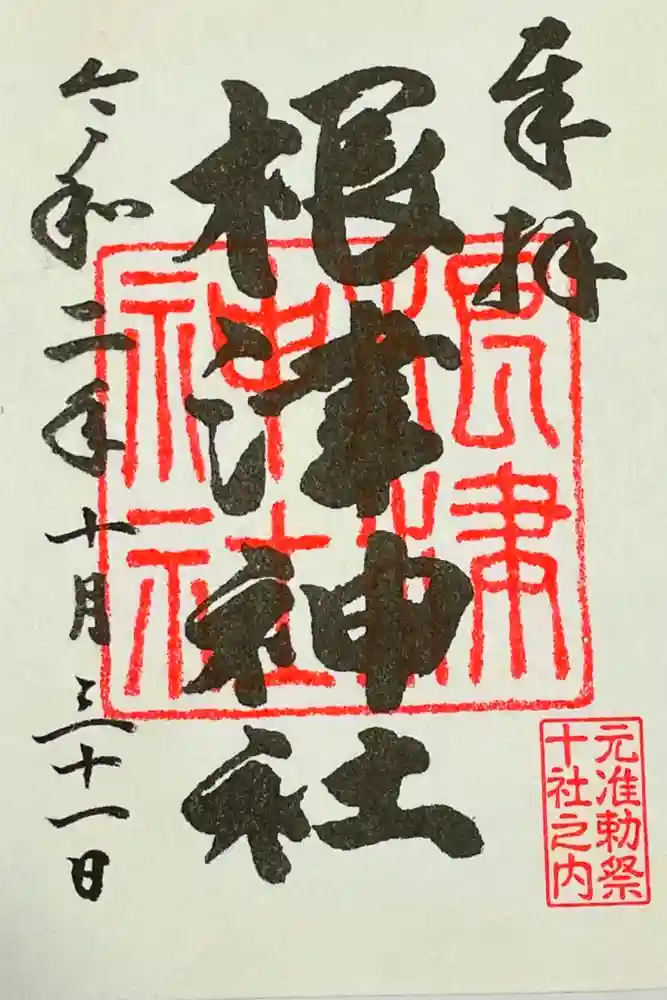 奉拝
根津神社
令和二年十月三十一日
根津
神社
元准勅祭
十社之内